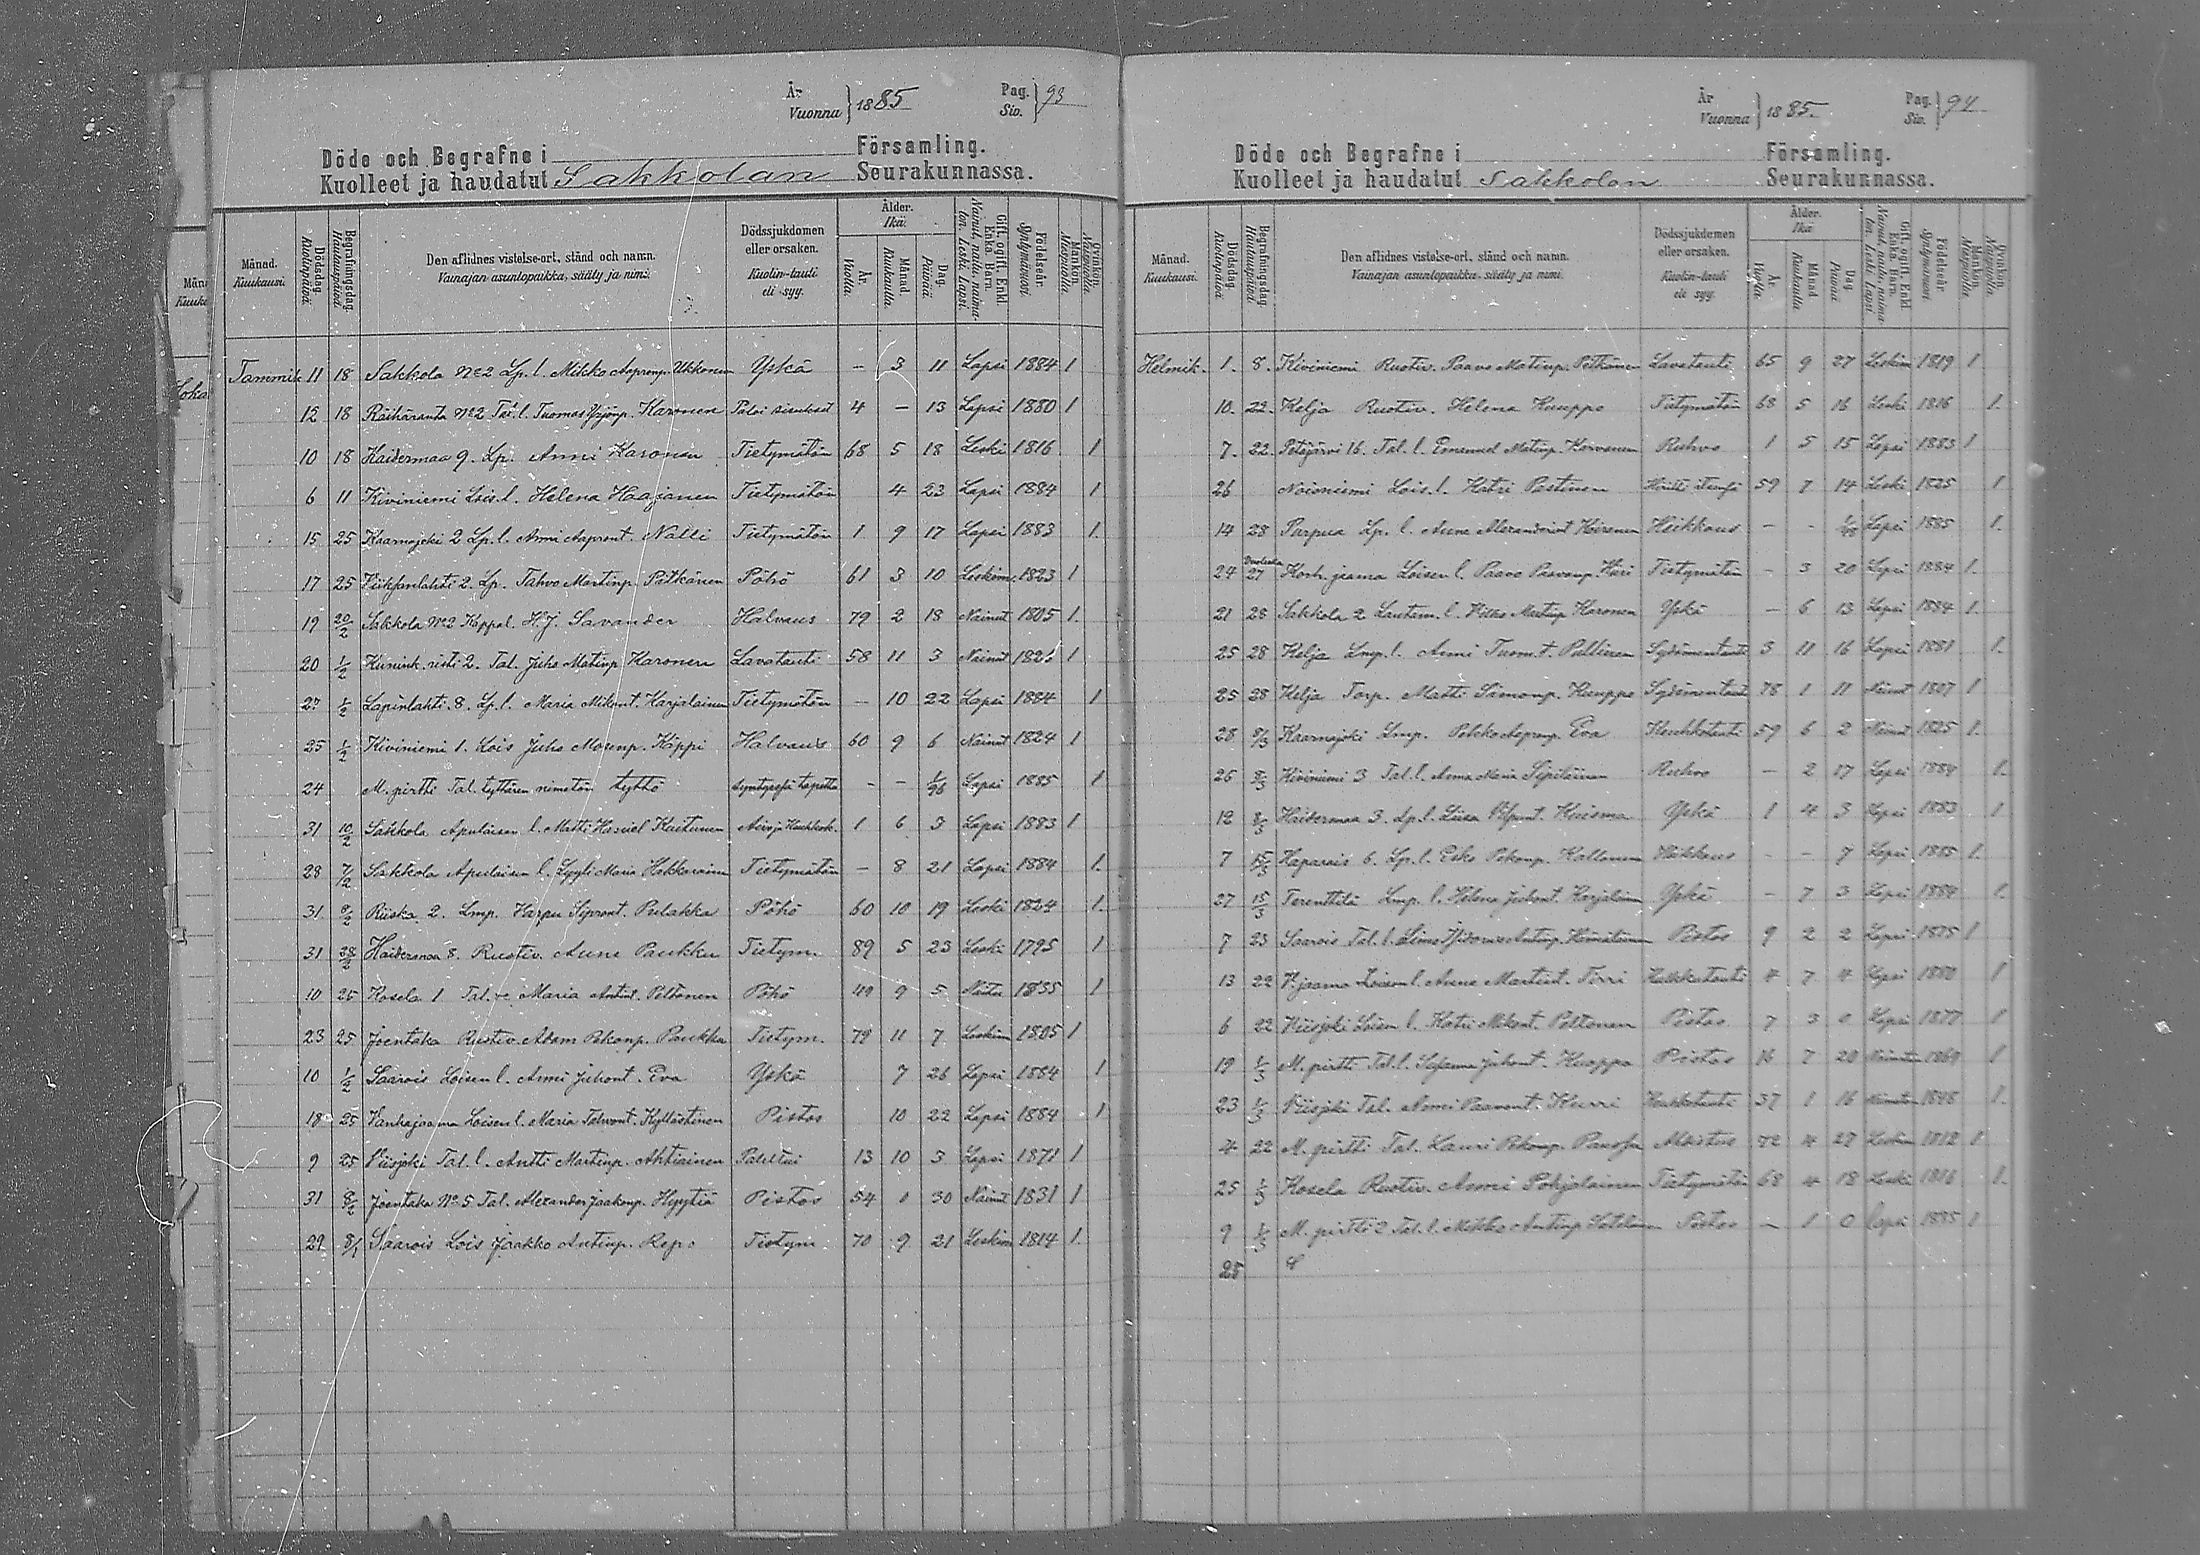 År
Vuonna } 1885 Pag. Siv. } 93
Döde och Begrafne i Församling.
Kuolleet ja haudatut Sakkolan Seurakunnassa.
Månad. Kuukausi. Dödsdag. Kuolinpäivä. Begrafningsdag. Hautauspäivä. Den aflidnes vistelse-ort, stånd och namn. Vainajan asuntopaikka, sääty ja nimi. Dödssjukdomen eller orsaken. Kuolin-tauti eli syy. Ålder. Ikä. År. Vuotta. Månad. Kuukautta. Dag. Päivää. Gift, ogift, Enkl. Enka, Barn. Nainut, naitu, naimaton, Leski, Lapsi. Födelseår. Syntymävuosi. Mankön. Miespuolia. Qvinkön. Vaimopuolia.
Tammik 11 18 Sakkola No 2 Lp. l. Mikko Aaprenp. Ukkonen Yskä – 3 11 Lapsi 1884 1
12 18 Räihäranta No 2 Tal. l. Tuomas Yrjönp. Karonen 4 – 13 Lapsi 1880 1
10 18 Haitermaa 9. Lp. Anni Karonen Tietymätön 68 5 18 Leski 1816 1
6 11 Kiviniemi Lois. l. Helena Haajanen Tietymätön 4 23 Lapsi 1884 1
15 25 Kaarnajoki 2 Lp. l. Anni Aaprent. Nalli Tietymätön 1 9 17 Lapsi 1883 1.
17 25 2. Lp. Tahvo Martinp. Pätkänen Pöhö 61 3 10 Leskim. 1823 1
19 20/2 Sakkola No 2 Kappal. H. J. Savander Halvaus 79 2 18 Nainut 1805 1.
20 1/2 Kunink. risti 2. Tal. Juho Matinp Karonen Lavatauti 58 11 3 Nainut 1826 1
27 1/2 Lapinlahti. 8. Lp. l. Maria Mikont. Karjalainen Tietymätön – 10 22 Lapsi 1884 1
25 1/2 Kiviniemi 1. Lois Juho Käppi Halvaus 60 9 6 Nainut 1824 1
24 M. pirtti Tal. tyttären nimetön tyttö – – Lapsi 1885 1
31 10/2 Sakkola Apulaisen l. Matti Kaitunen 1 6 3 Lapsi 1883 1
28 7/2 Sakkola Apulaisen l. Lyyli Maria Hakkarainen Tietymätön – 8 21 Lapsi 1884 1.
31 8/2 Riiska 2. Lmp. Varpu Siprent. Pulakka Pöhö 60 10 19 Leski 1824 1.
31 28/2 Haitermaa 8. Rustiv. Anna Paukku Tietym. 89 5 23 Leski 1795 1
10 25 Kosela 1 Tal. v. Maria Antint. Peltonen Pöhö 49 9 5 Naitu 1835 1
23 25 Joentaka Rustiv. Adam Pekanp. Paukku Tietym. 79 11 7 Leskim 1805 1
10 1/2 Saarois Loisen l. Anni Juhont. Eva Yskä 7 26 Lapsi 1884 1
18 25 Vanhajaama Loisen l. Maria Tahvont. Kyllästinen Pistos 10 22 Lapsi 1884 1
9 25 Viisjoki Tal. l. Antti Martinp. Ahtiainen 13 10 3 Lapsi 1871 1
31 8/2 Joentaka No 5 Tal. Alexander Jaakonp. Hyytiä Pistos 54 1 30 Nainut 1831 1
29 8/1 Saarois Lois Jaakko Antinp. Repo Tietym 70 9 21 Leskim 1814 1.
År
Vuonna } 1885. Pag. Siv. } 94
Döde och Begrafne i Församling.
Kuolleet ja haudatut Sakkolan Seurakunnassa.
Månad. Kuukausi. Dödsdag. Kuolinpäivä. Begrafningsdag. Hautauspäivä. Den aflidnes vistelse-ort, stånd och namn. Vainajan asuntopaikka, sääty ja nimi. Dödssjukdomen eller orsaken. Kuolin-tauti eli syy. Ålder. Ikä. År. Vuotta. Månad. Kuukautta. Dag. Päivää. Gift, ogift, Enkl. Enka, Barn. Nainut, naitu, naimaton, Leski, Lapsi. Födelseår. Syntymävuosi. Mankön. Miespuolia. Qvinkön. Vaimopuolia.
Helmik. 1. 8. Kiviniemi Rustiv. Paavo Matinp. Pätkänen Lavatauti 65 9 27 Leskim 1819 1
10. 22. Kelja Rustiv. Helena Kuuppo Tietymätön 68 5 16 Leski 1816 1.
7. 22. Petäjärvi 16. Tal. l. Emanuel Matinp. Karvonen Ruhvo 1 5 15 Lapsi 1883 1
26 Noisniemi Lois. l. Katri Pastinen 59 7 14 Leski 1825 1
14 28 Purpua Lp. l. Anna Hoirenen Heikkous – – Lapsi 1885 1.
24 27 jaama Loisen l. Paavo Paavonp. Tietymätön – 3 20 Lapsi 1884 1.
21 28 Sakkola 2 Lautam. l. Mikko Martinp Karonen Yskä – 6 13 Lapsi 1884 1.
25 28 Kelja Lmp. l. Anni Tuom. t. Pullinen Sydämentauti 3 11 16 Lapsi 1881 1.
25 28 Kelja Torp. Matti Simonp. Kuuppo Sydämentauti 78 1 11 Nainut 1807 1
28 8/3 Kaarnajoki Lmp. Pekko Aaprenp. Eva Keuhkotauti 59 6 2 Nainut 1825 1
26 8/3 Kiviniemi 3 Tal. l. Anna Maria Sipiläinen Ruhvo – 2 17 Lapsi 1884 1.
12 8/3 Haitermaa 3. Lp. l. Liisa Huisma Yskä 1 4 3 Lapsi 1883 1
7 15/3 Haparais 6. Lp. l. Esko Pekanp. Kallonen Heikkous – – 7 Lapsi 1885 1.
27 15/3 Terenttilä Lmp. l. Helena Juhont. Karjalainen Yskä – 7 3 Lapsi 1884 1.
7 23 Saarois Tal. l. Antinp. Hämäläinen Pistos 9 2 2 Lapsi 1875 1
13 22 V. jaama Loisen l. Anna Martint. Torri Keuhkotauti 4 7 4 Lapsi 1880 1
6 22 Viisjoki Loisen l. Katri Mikont. Peltonen Pistos 7 3 0 Lapsi 1877 1
19 1/3 M. pirtti Tal. l. Susanna Juhont. Kuoppa Pistos 16 7 20 Naimaton 1869 1
23 1/3 Viisjoki Tal. Anni Paavont. Hurri Keuhkotauti 37 1 16 Naimaton 1848 1.
4 22 M. pirtti Tal. Lauri Pekonp. 72 4 27 Leskim 1812 1
25 1/3 Kosela Rustiv. Anni Pohjolainen Tietymätön 68 4 18 Leski 1816 1.
9 1/3 M. pirtti 2 Tal. l. Mikko Antinp. Pistos – 1 0 Lapsi 1885 1
25